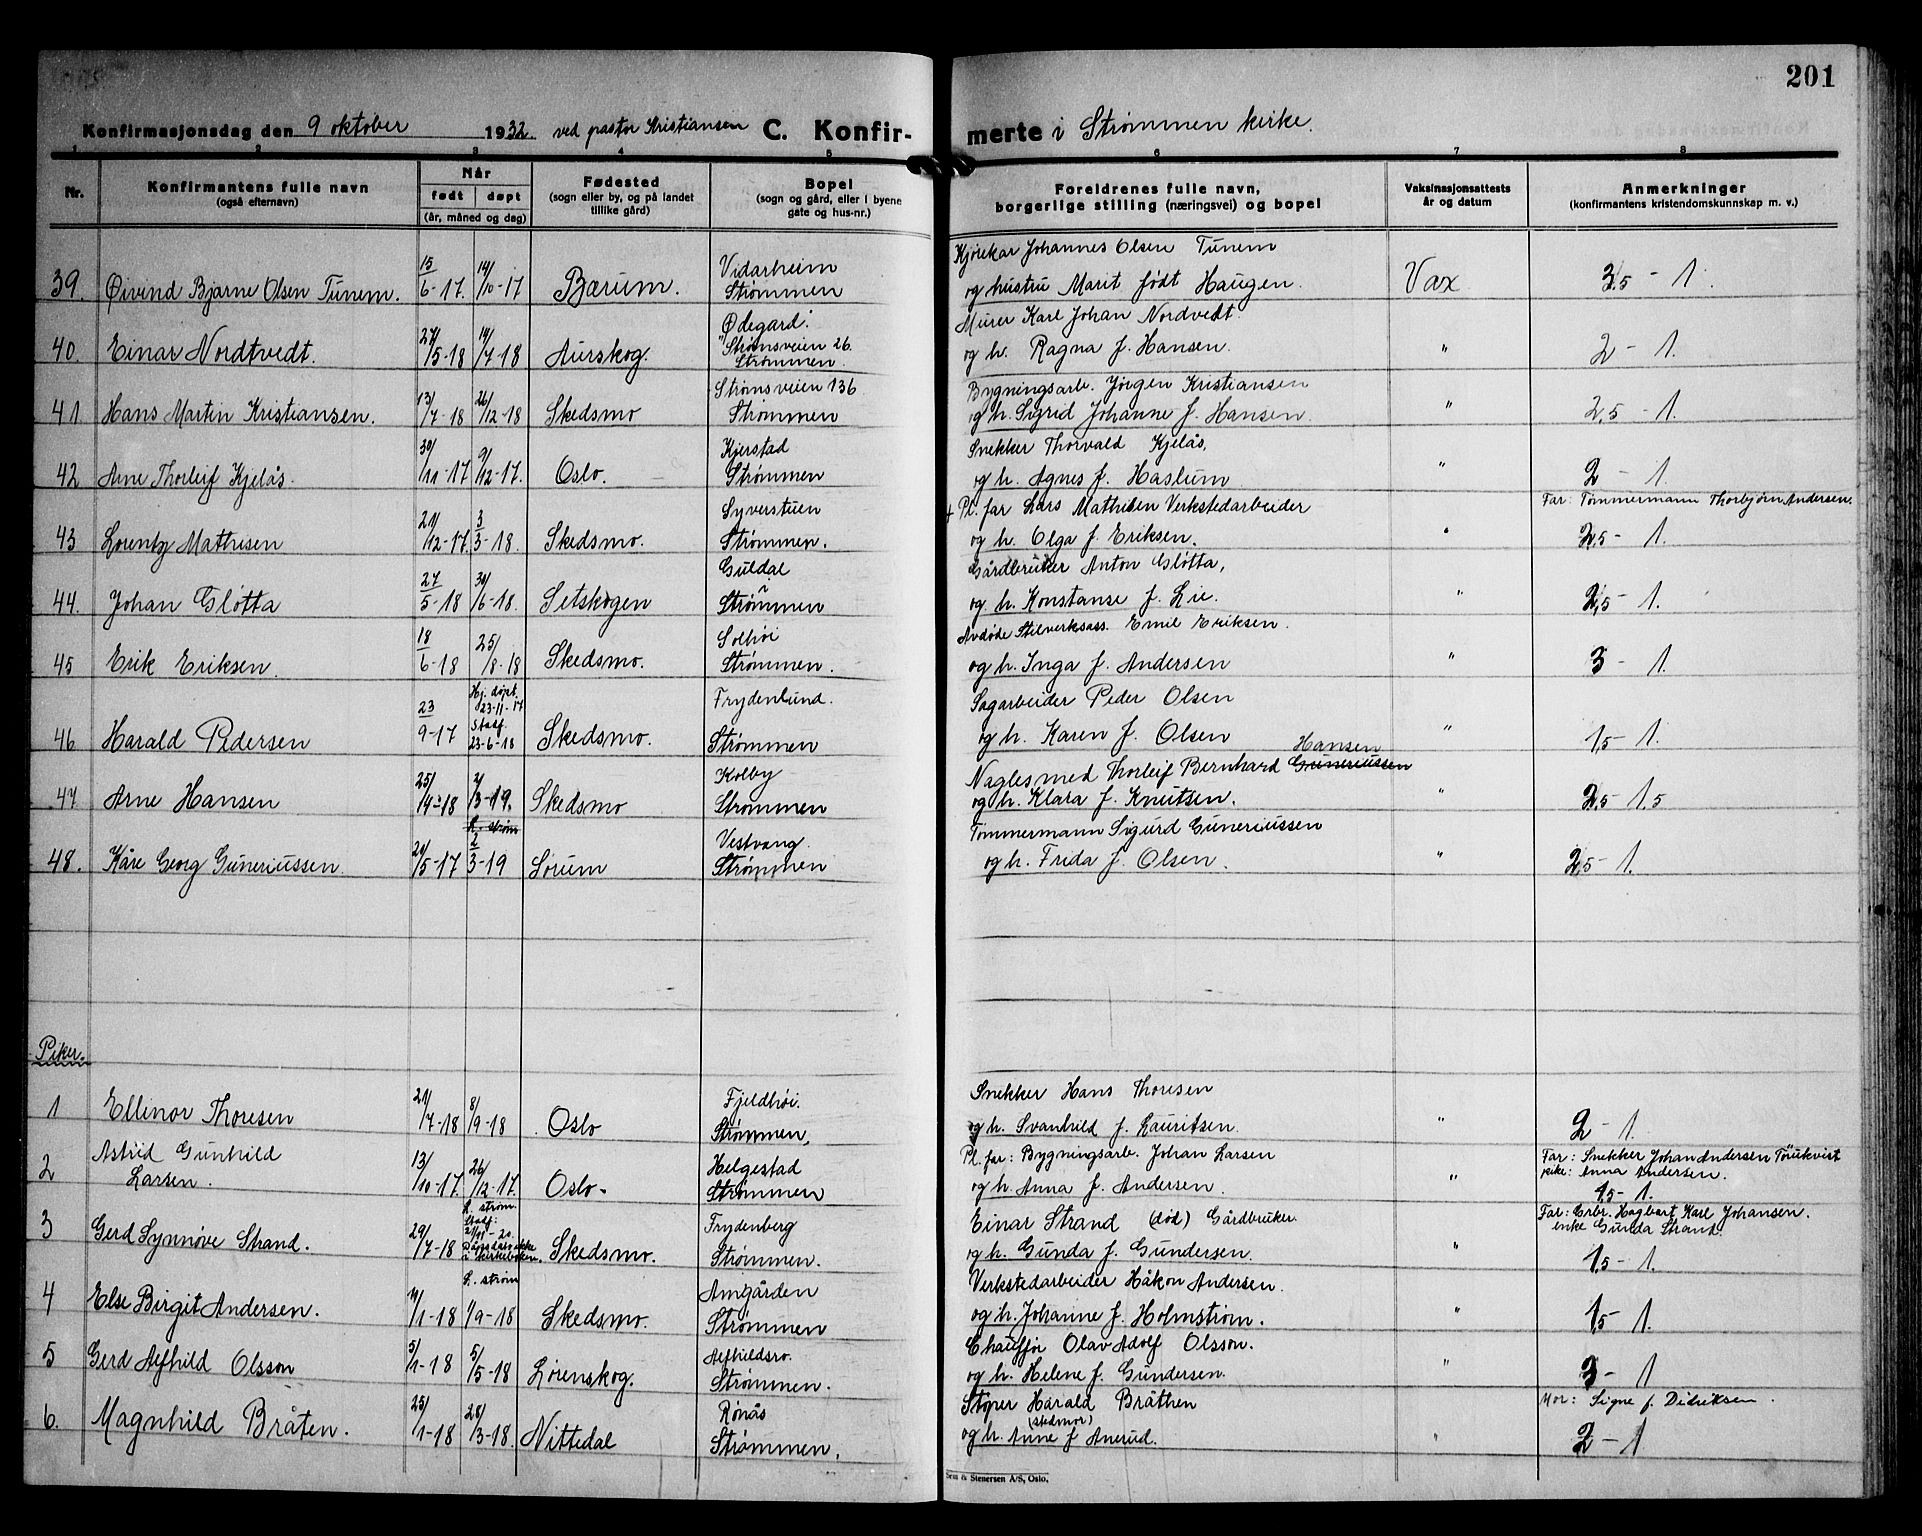 201
Konfirmasjonsdag den 9 oktober 1932 ved pastor Kristiansen C. Konfir-
merte i Strømmen kirke.
1 2 3 4 5 6 7 8
Nr. Konfirmantens fulle navn (også efternavn) Når født døpt (år, måned og dag) Fødested (sogn eller by, og på landet tillike gård) Bopel (sogn og gård, eller i byene gate og hus-nr.) Foreldrenes fulle navn, borgerlige stilling (næringsvei) og bopel Vaksinasjonsattests år og datum Anmerkninger (konfirmantens kristendomskunnskap m. v.)
15 14/ Vidarheim Kjørekar Johannes Olsen Tunem
39. Øivind Bjarne Olsen Tunem. 6-17. 10-17 Bærum. Strømmen og hustru Marit født Haugen. Vax 3,5 - 1.
27/ 14/ Ødegard. Murer Karl Johan Nordvedt.
40. Einar Nordtvedt. 5-18 7-18 Aurskog. Strømsveien 26. Strømmen. og h. Ragna f. Hansen. " 2 - 1.
13/ 26/ Strømsveien 136 Bygningsarb. Jørgen Kristiansen
41 Hans Martin Kristiansen. 7-18 12-18 Skedsmo Strømmen og h. Sigrid Johanne f. Hansen. " 2,5 - 1.
30/ 9/ Kjerstad Snekker Thorvald Kjelås,
42 Arne Thorleif Kjelås. 11-17 12-17. Oslo. Strømmen og h. Agnes f. Haslum " 2 - 1.
21/ 3 Syverstuen Pl. far Lars Mathisen Verkstedarbeider Far: Tømmermann Thorbjørn Andersen.
43 Lorentz Mathisen 12-17. 3-18. Skedsmo. Strømmen. og h. Olga f. Eriksen. " 2,5 - 1.
27 30/ Guldal Gårdbruker Anton Sløtta,
44. Johan Sløtta 5-18 6-18. Setskogen Strømmen og h. Konstanse f. Lie. " 2,5 - 1.
18 25/ Solhøi Avdøde Stålverksass. Emil Eriksen.
45 Erik Eriksen. 6-18 8-18 Skedsmo. Strømmen. og h. Inga f. Andersen " 3 - 1.
23 Hj. døpt. 23-11-17 Stadf. Frydenlund. Sagarbeider Peder Olsen
46 Harald Pedersen 9-17 23-6-18 Skedsmo. Strømmen og h. Karen f. Olsen " 1,5 - 1.
Hansen
25/ 2/ Kolby Naglesmed Thorleif Bernhard Guneriussen
47 Arne Hansen 4-18 3-19. Skedsmo Strømmen og h. Klara f. Knutsen. " 2,5 - 1,5
k. strøm
20/ 2 Vestvang. Tømmermann Sigurd Guneriussen
48. Kåre Georg Guneriussen. 5-17 3-19 Sørum Strømmen og h. Frida f. Olsen. " 2,5 - 1.
Piker.
21/ 8/ Fjeldhøi. Snekker Hans Thoresen
1 Ellinor Thoresen 7-18 9-18 Oslo Strømmen, og h. Svanhild f. Lauritsen. " 2 - 1.
Astrid Gunhild 13/ 26/ Helgestad Pl. far: Bygningsarb. Johan Larsen Far: Snekker Johan Andersen Törnkvist
pike: Anna Andersen.
2 Larsen. 10-17. 12-17. Oslo. Strømmen og h. Anna f. Andersen. " 1,5 - 1.
k. strøm. Stadf: Frydenberg Einar Strand (død) Gårdbruker. Far: Erbr. Hagbart Karl Johansen.
enke Gunda Strand.
3 Gerd Synnøve Strand. 29/7-18 Skedsmo. Strømmen. og h. Gunda f. Gundersen. " 1,5 - 1.
k. strøm Amgården Verkstedarbeider Håkon Andersen.
4 Else Birgit Andersen. 1-18 1/9-18 Skedsmo. Strømmen og h. Johanne f. Holmstrøm. " 1,5 - 1.
5/ 5/ Alfhildsro. Chauffør Olav Adolf Olsson.
5 Gerd Alfhild Olsson 1-18 5-18 Lørenskog. Strømmen. og h. Helene f. Gundersen. " 3 - 1
25/ 28/ Rønås Støper Harald Bråthen Mor: Signe f. Didriksen.
(stedmor)
6. Magnhild Bråten. 1-18 3-18. Nittedal Strømmen. og h. Anne f Anerud. " 2 - 1
Sem & Stenersen A/S, Oslo.